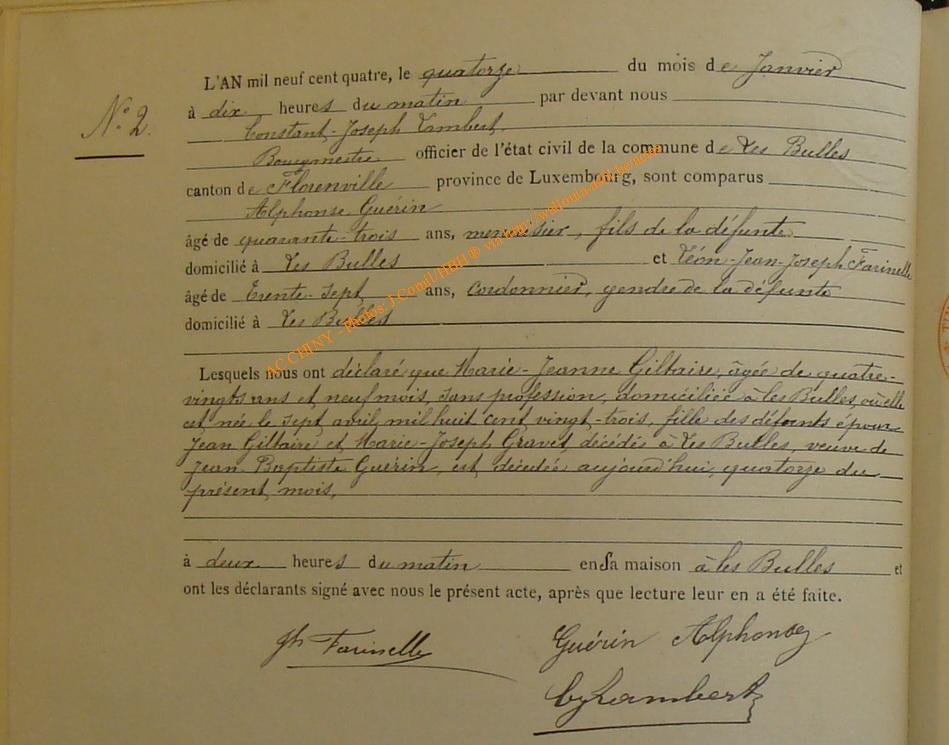 L'AN mil neuf cent quatre, le quatorze du mois de Janvier
N° 2.
à dix heures du matin par devant nous
Constant-Joseph Lambert,
Bourgmestre officier de l'état civil de la commune de Les Bulles
canton de Florenville province de Luxembourg, sont comparus
Alphonse Guérin
âgé de quarante-trois ans, menuisier, fils de la défunte
domicilié à Les Bulles et Léon-Jean-Joseph Farinelle
âgé de Trente-sept ans, Cordonnier, gendre de la défunte
domicilié à Les Bulles
Lesquels nous ont déclaré que Marie-Jeanne Giltaire, âgée de quatre-
vingts ans et neuf mois, sans profession, domiciliée à les Bulles, où elle
est née le sept avril mil huit cent vingt-trois, fille des défunts époux
Jean Giltaire et Marie-Joseph Gravet, décédés à Les Bulles, veuve de
Jean Baptiste Guérin, est décédée aujourd'hui, quatorze du
présent mois,
à deux heures du matin en sa maison à les Bulles et
ont les déclarants signé avec nous le présent acte, après que lecture leur en a été faite.
Farinelle Guérin Alphonse
Lambert
AC CHINY - Photos J.Comil/HBH ® via http://wallonia-arld